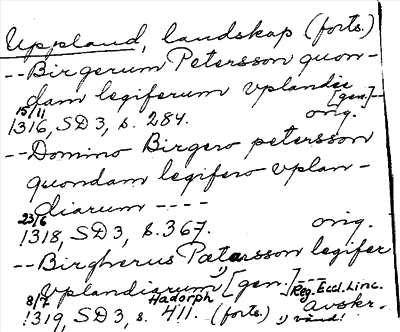 Uppland, landskap (forts.)
-- Birgerum Petersson quon-
dam legiferum vplandie
[gen.]--
15/11
1316, SD 3, s. 284. orig.
-- Domino Birgero petersson
quondam legifero vplan-
diarum ----
23/6
1318, SD 3, s. 367. orig.
-- Birgherus Pætarsson legifer
vplandiarum [gen.] ---
8/7 Hadorph Reg. Eccl. Linc.
1319, SD 3, s. 411. (forts.) avskr.
vänd!